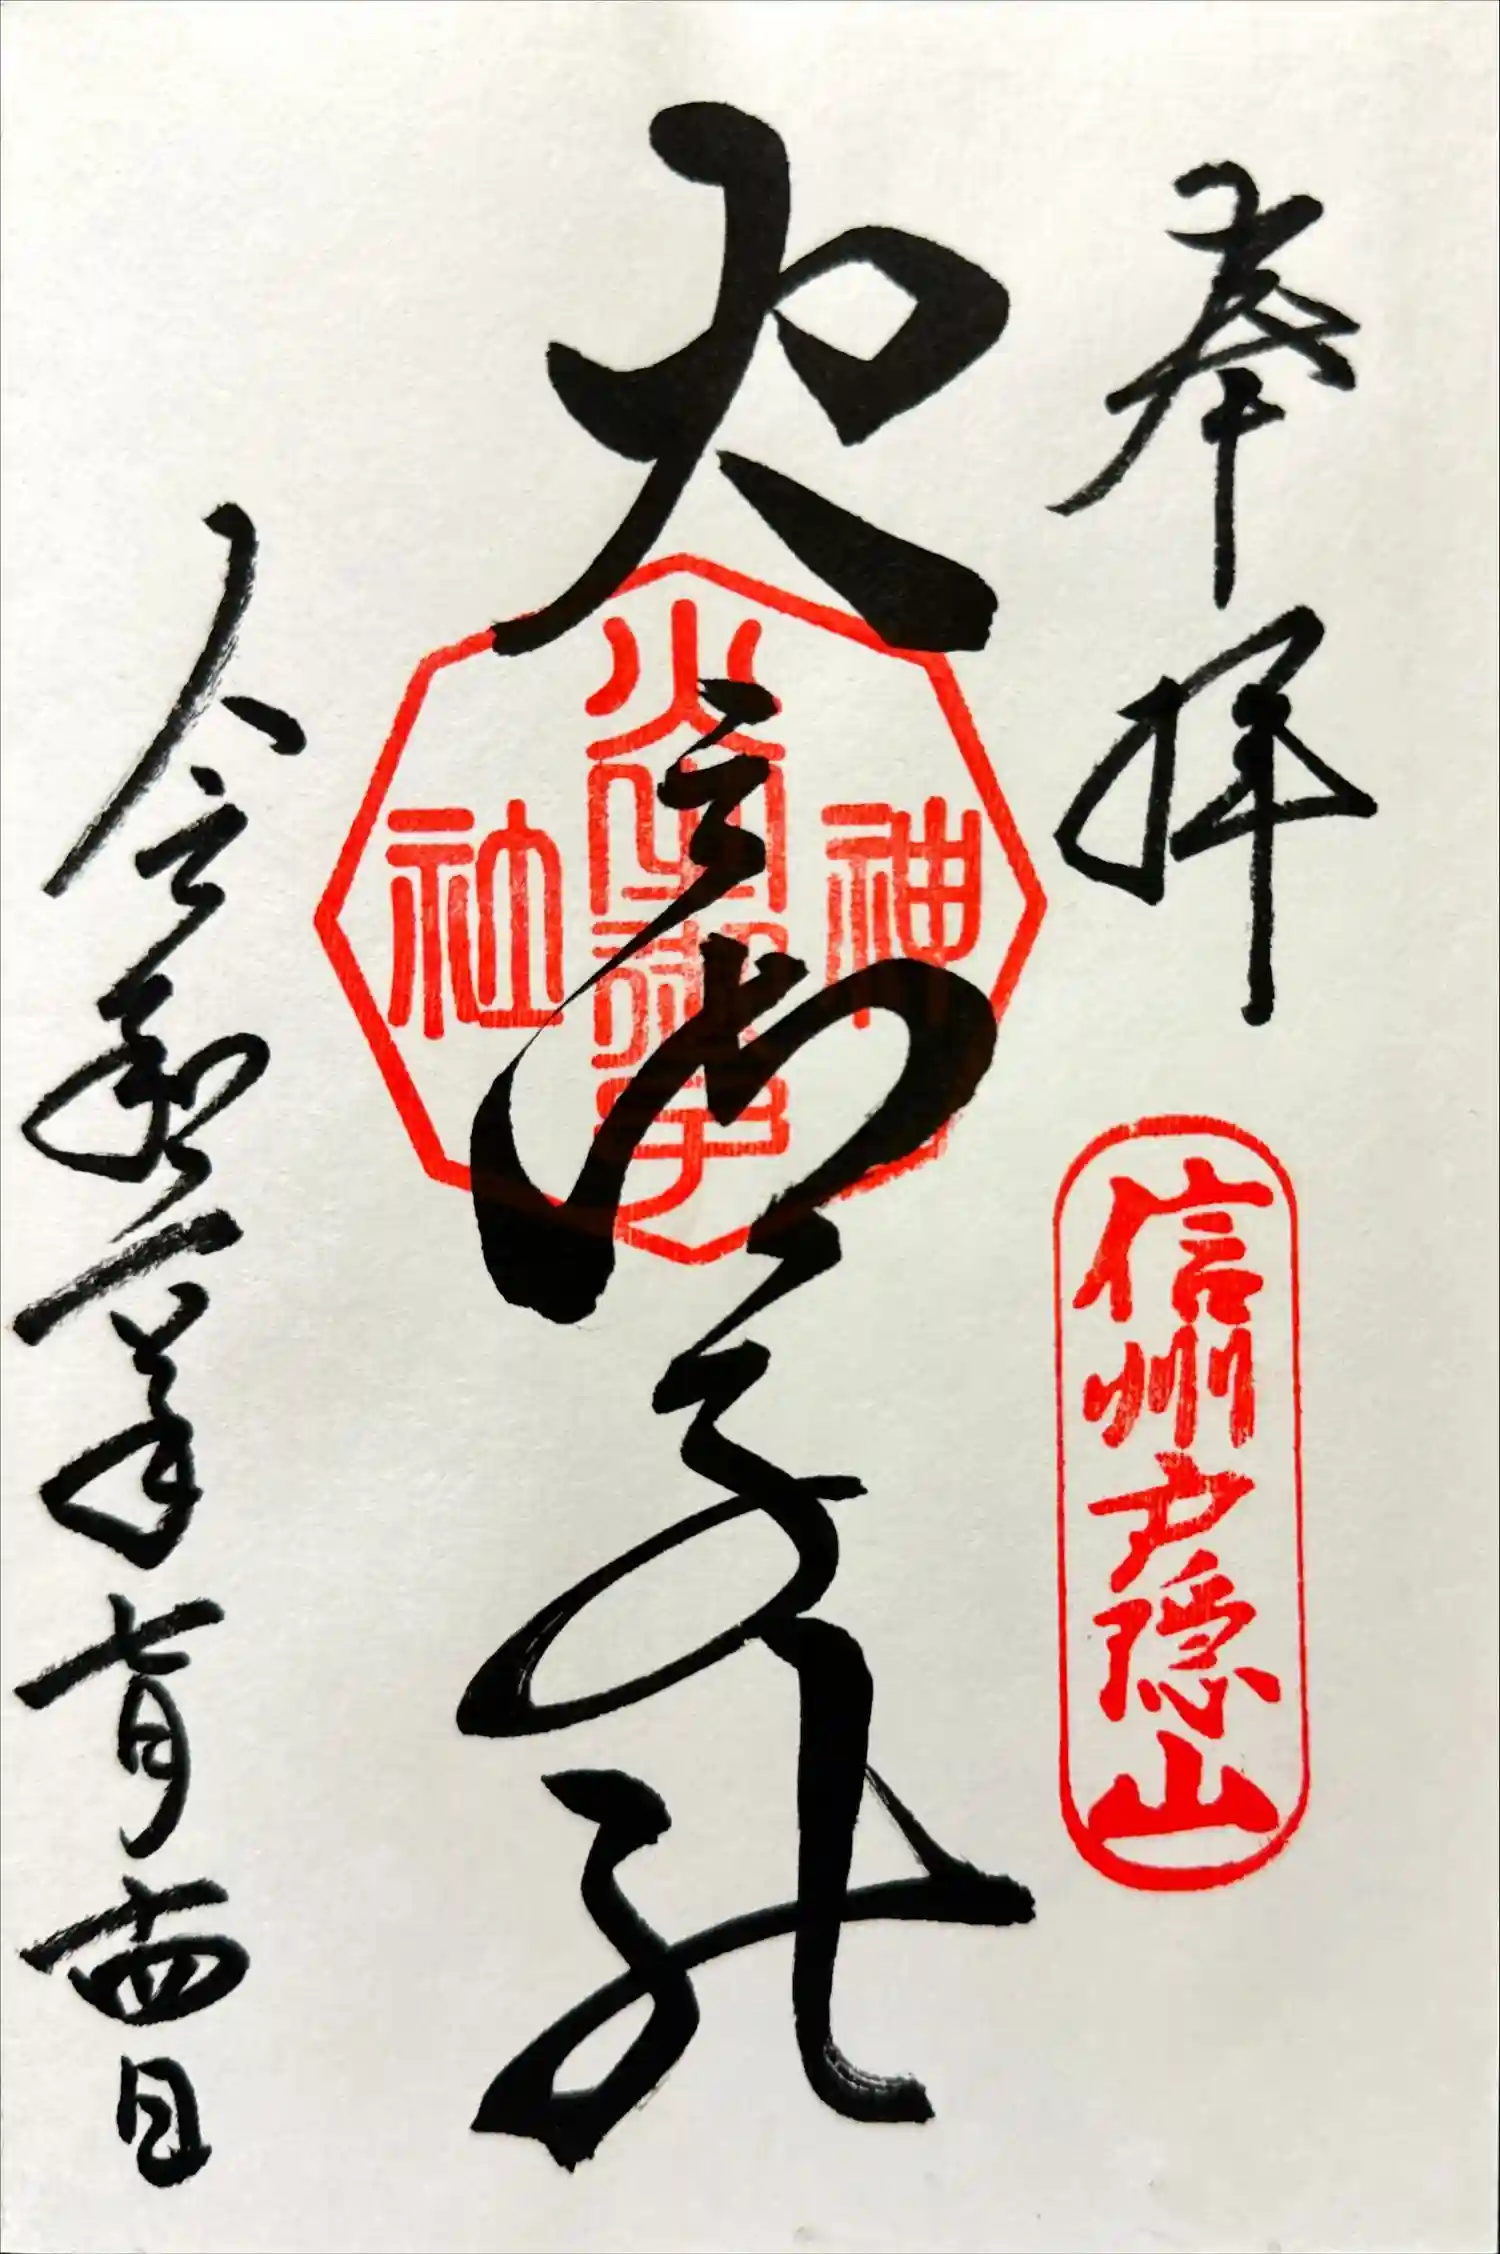 奉拝
信州戸隠山
火之御子社
神
火之御子
社
令和二年七月十四日